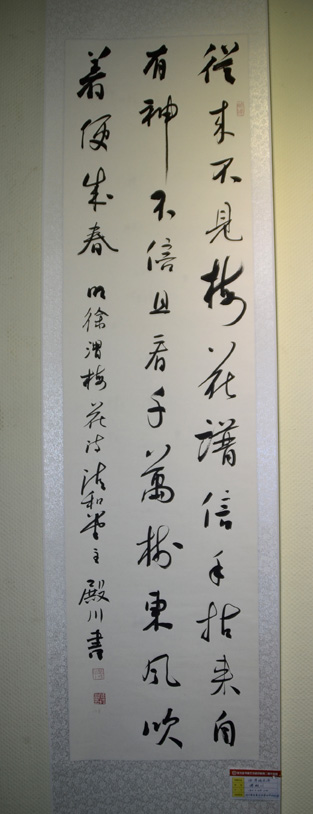 從来不見梅花譜信手拈来自
有神不信且看千萬樹東風吹
着便成春 明徐渭梅花诗 清和堂主 殿川書